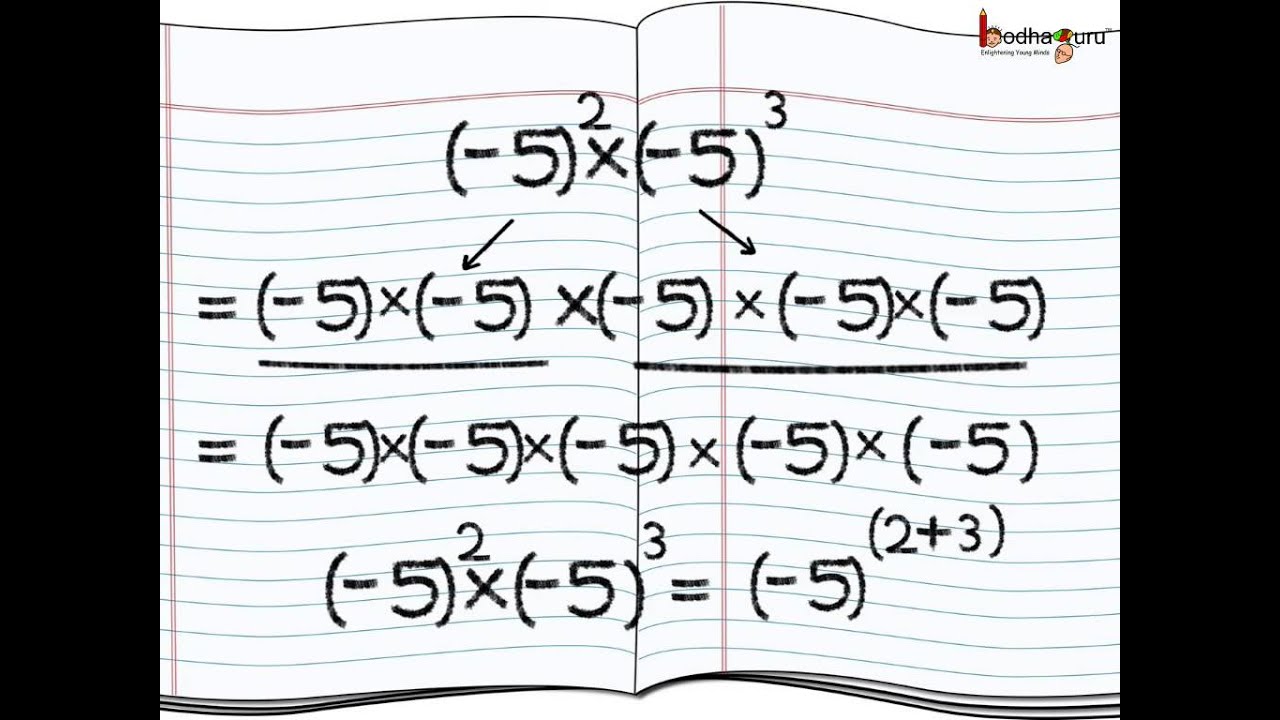 bodhaguru™
Enlightening Young Minds
(-5)²×(-5)³
=(-5)×(-5)×(-5)×(-5)×(-5)
=(-5)×(-5)×(-5)×(-5)×(-5)
(-5)²×(-5)³=(-5)⁽²⁺³⁾